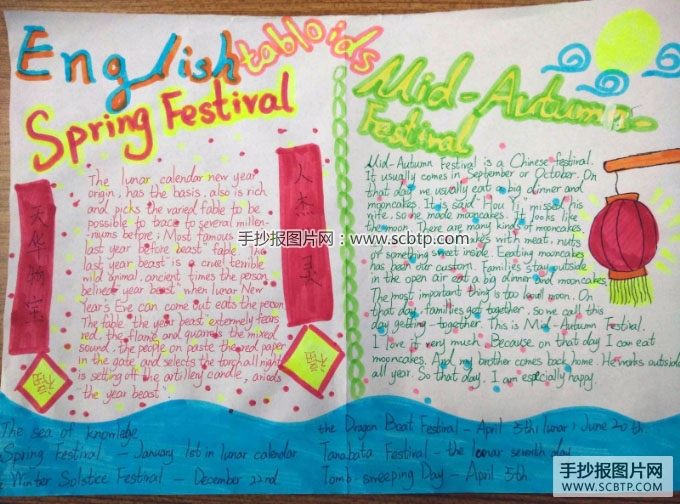 English tabloids
Spring Festival
The lunar calendar new year
origin, has the basis, also is rich
and picks the varied fable to be
possible to trace to several millen-
niums before; Most famous has
last year before beast fable. The
last year beast is a cruel terrible
wild animal, ancient times the person
believes year beast when lunar New
Year's Eve can come out eats the person.
The fable the year beast extermely fears
red, the flame and guarans the mixed
sound, the people on paste the red paper
in the gate, and selects the torch all night
is setting off the artillery candle, avoids
the year beast
天华物宝
人杰灵
福
福
Mid-Autumn-
Festival
Mid-Autumn Festival is a Chinese festival.
It usually comes in September or October. On
that day we usually eat a big dinner and
mooncakes. It is said Hou Yi missed his
wife, so he made mooncakes. It looks like
the moon. There are many kinds of mooncakes.
mooncakes with meat, nuts
of something sweet inside. Eeating mooncakes
has been our custom. Families stay outside
in the open air eat a big dinner and mooncakes.
The most important thing is too look moon. On
that day, families got together, so we call this
day getting-together. This is Mid-Autumn Festival.
I love it very much. Because on that day I can eat
mooncakes. And my brother comes back home. He works outside
all year. So that day, I am especially happy.
The sea of knowledge
Spring Festival - January 1st in lunar calendar
Winter Solstice Festival - December 22nd.
the Dragon Boat Festival - April 5th lunar; June 20th
Tanabata Festival - the lunar seventh day
Tomb-sweeping Day - April 5th.
手抄报图片网：www.scbtp.com
手抄报图片网
WWW.SCBTP.COM